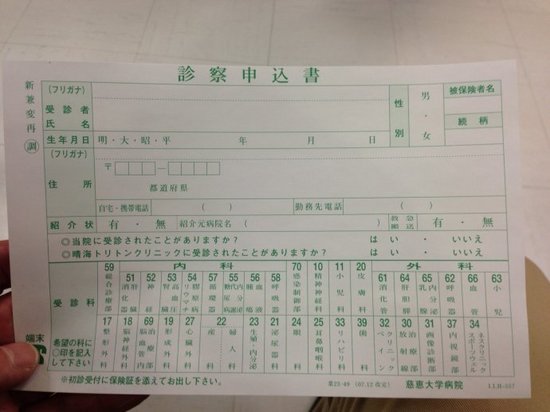 診察申込書
新 兼 変 再 調
(フリガナ)
受診者
氏名
性別
男・女
被保険者名
続柄
生年月日 明・大・昭・平 年 月 日
(フリガナ)
住所
〒 —
都道府県
自宅・携帯電話 ( )
勤務先電話 ( )
紹介状 有・無 紹介元病院名 ( ) 救急搬送 有・無
◎当院に受診されたことがありますか? はい・いいえ
◎晴海トリトンクリニックに受診されたことがありますか? はい・いいえ
受診科
内科
外科
59 総合診療部
51 消化器
52 神経
53 腎高血圧
54 リウマチ膠原病
57 循環器
55 糖尿代内分泌
56 腫瘍血液
58 呼吸
70 感染制御部
10 精神神経科
11 小児科
20 皮膚科
61 消化管
64 肝胆膵
65 乳内分泌
62 呼吸器
66 血管
63 小児
17 整形外科
18 脳神経外科
69 脳血管内治療部
19 形成外科
27 心臓外科
22 産婦人科
23 生殖・内分泌
21 泌尿器科
24 眼科
25 耳鼻咽喉科
33 リハビリ科
39 歯科
32 ペインクリニック
30 放射線部
31 画像診断部
37 内視鏡部
34 スポーツウェルネスクリニック
端末
希望の科に
○印を記入
して下さい
※初診受付に保険証を添えてお出し下さい。
第23-49 (07.12改定)
慈恵大学病院